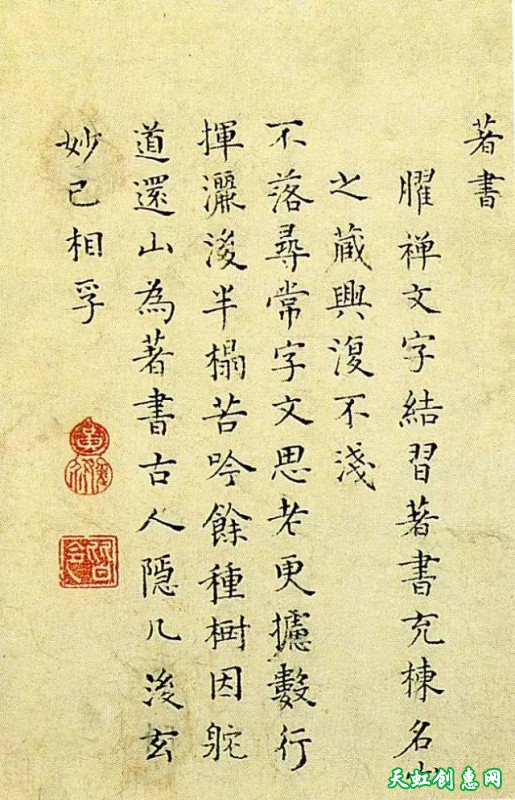 著書
臞禅文字結習著書充棟名山
之蔵興復不淺
不落尋常字文思老更攄數行
揮灑後半榻苦吟餘種樹因駝
道還山為著書古人隠几後玄
妙已相孚
天虹创惠网